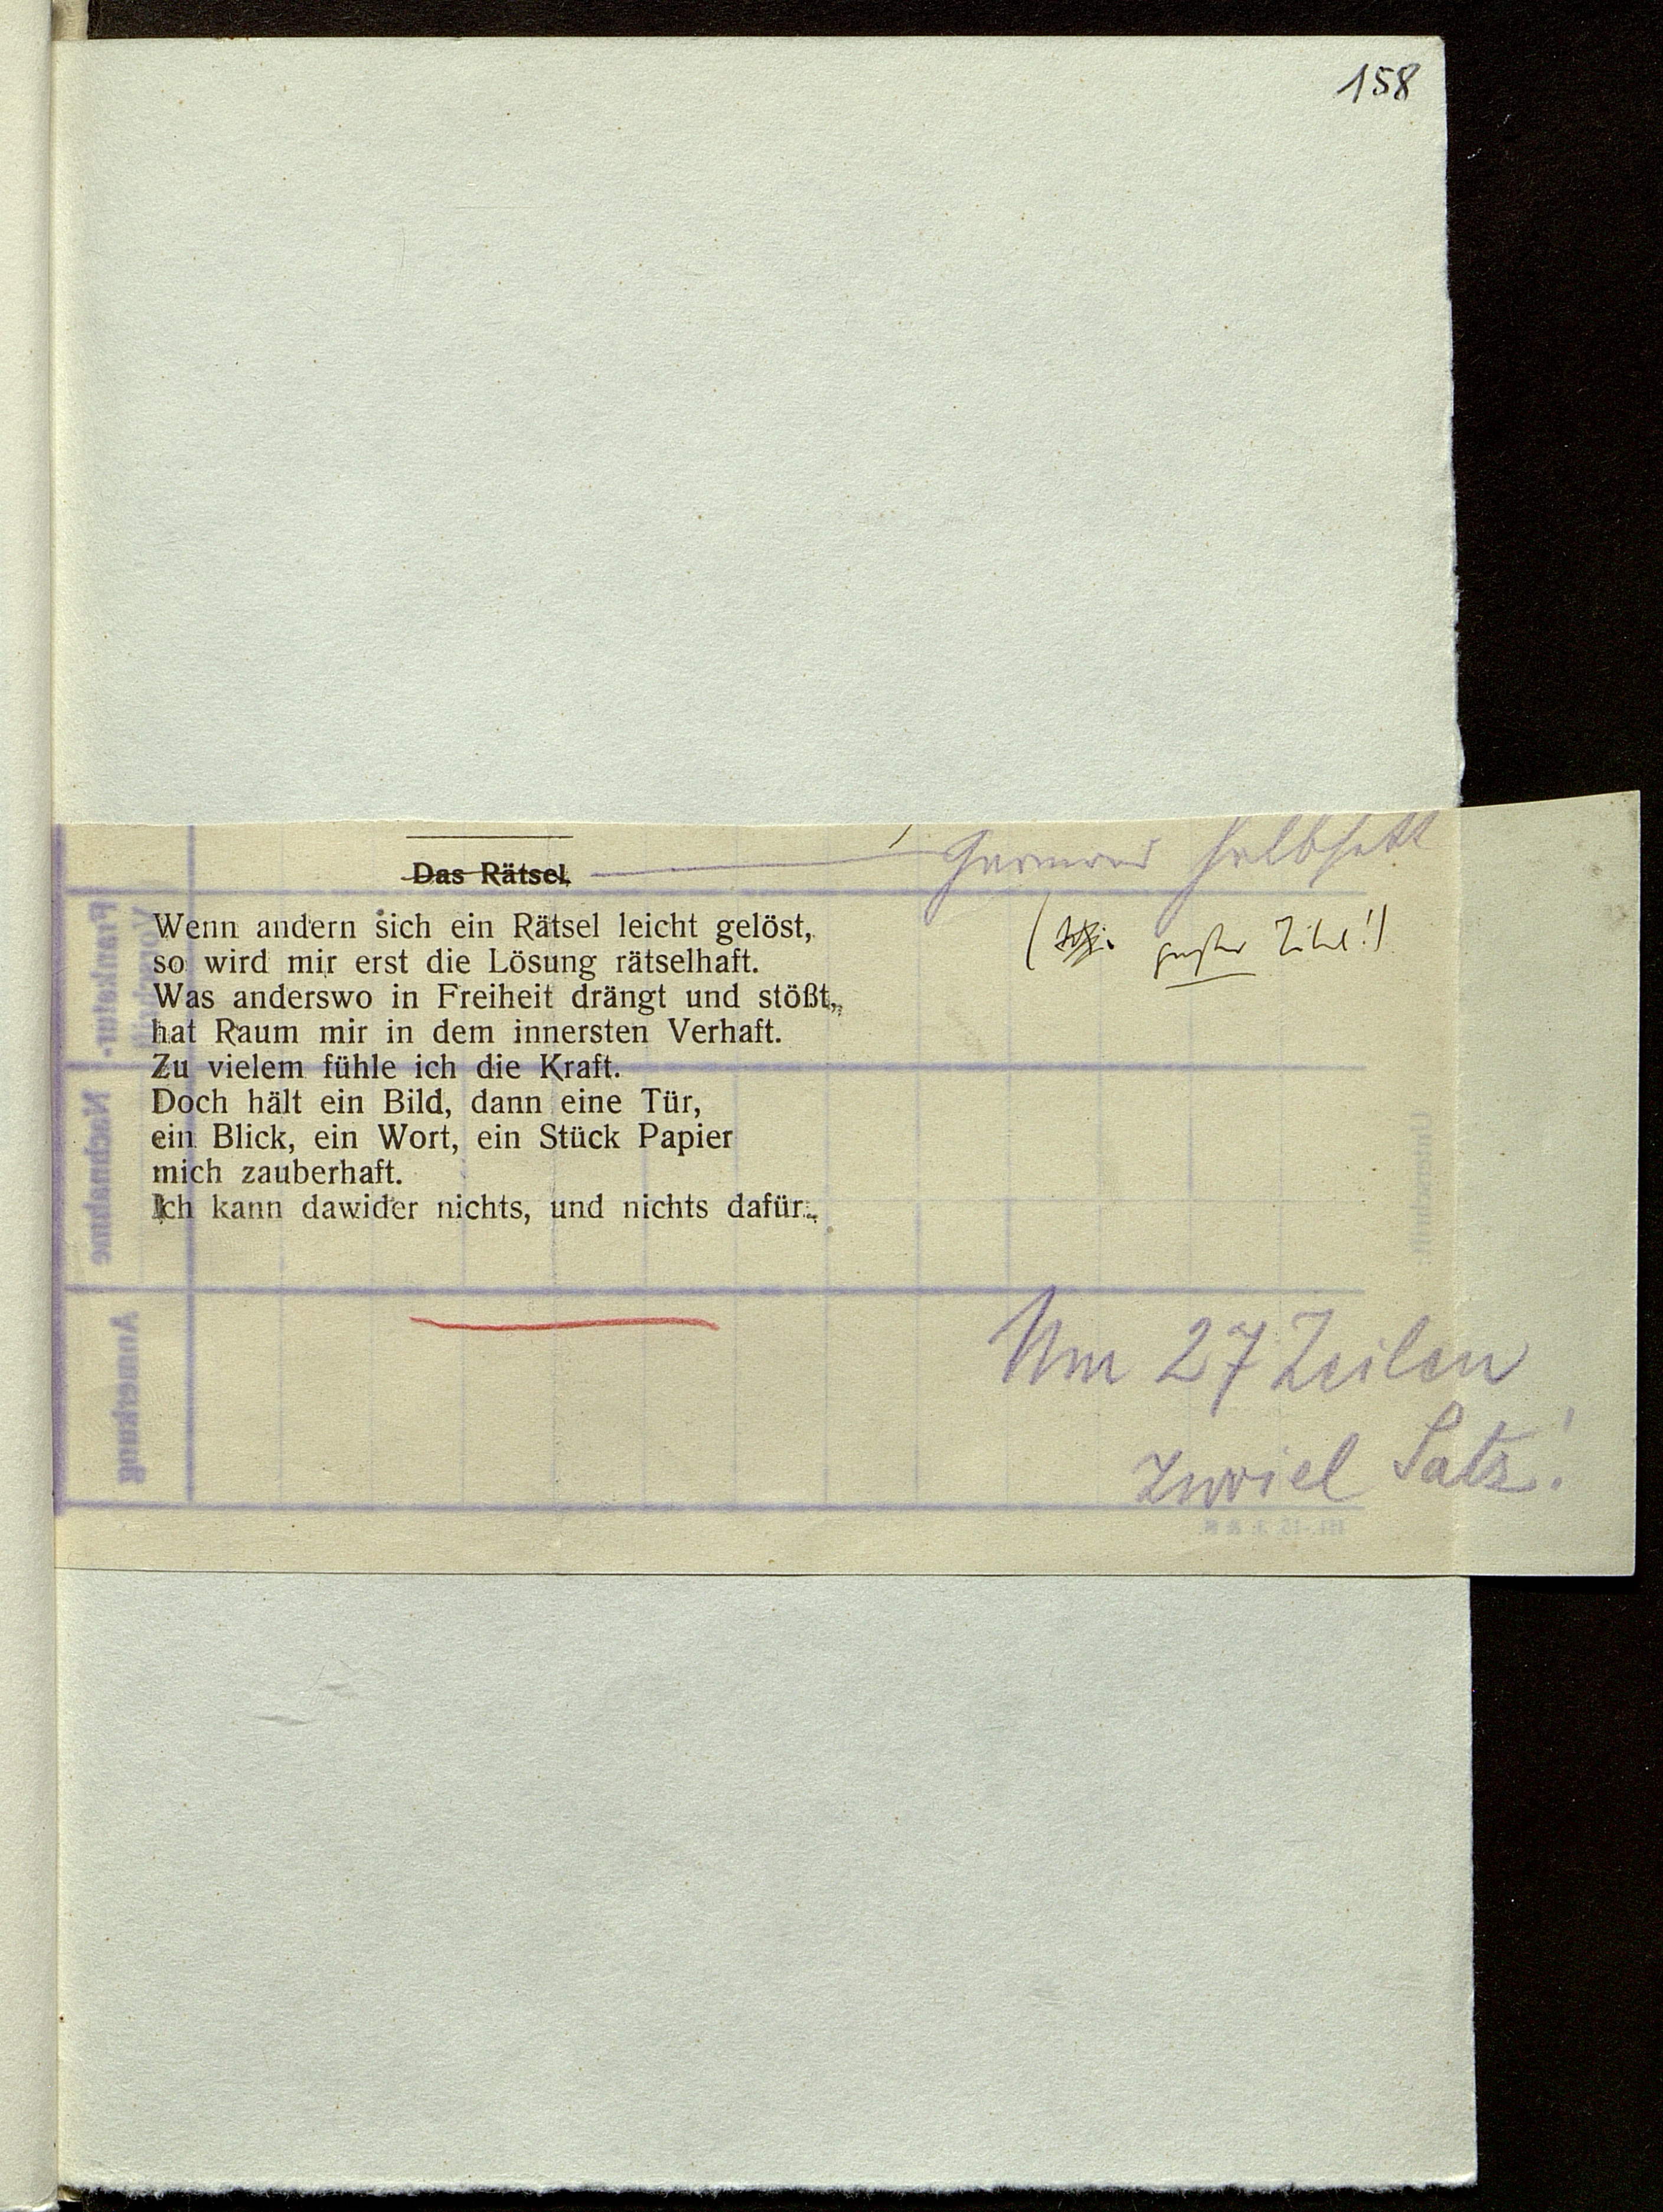 158
Das Rätsel
Wenn andern sich ein Rätsel leicht gelöst,
so wird mir erst die Lösung rätselhaft.
Was anderswo in Freiheit drängt und stößt,
hat Raum mir in dem innersten Verhaft.
Zu vielem fühle ich die Kraft.
Doch hält ein Bild, dann eine Tür,
ein Blick, ein Wort, ein Stück Papier
mich zauberhaft.
Ich kann dawider nichts, und nichts dafür.
Um 27 Zeilen
zuviel Satz!
Frankatur-
Nachnahme
Anmerkung
Unterschrift: